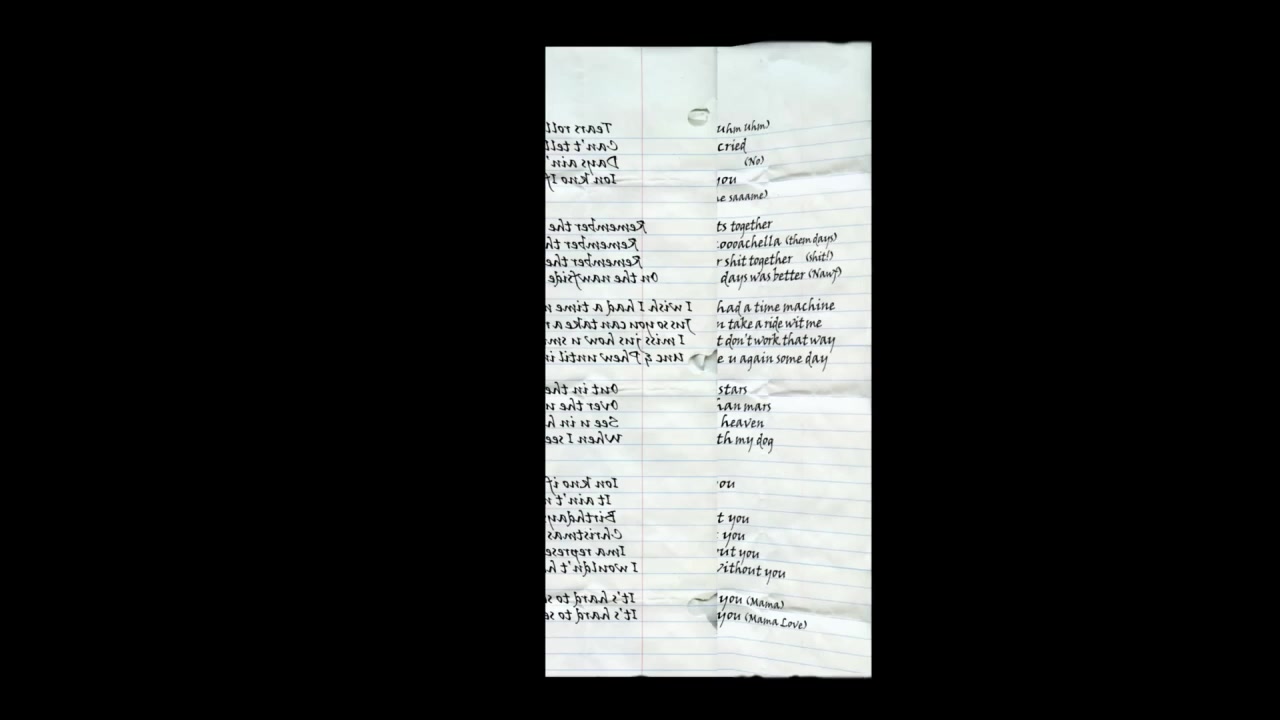 Tears roll uhm uhm)
Can't tell cried
Days ain' (No)
Ion kno If you
e saaame)
Remember the ts together
Remember th oooachella (them days)
Remember the r shit together (shit!)
On the nawfside days was better (Nawf)
I wish I had a time m had a time machine
Jus so you can take a r n take a ride wit me
I miss jus how u sm t don't work that way
Unc & Phew until i e u again some day
Out in the stars
Over the han mars
See u in h heaven
When I see th my dog
Ion kno if ou
It ain't n
Birthday t you
Christmas you
Ima represe ut you
I wouldn't h ithout you
It's hard to s you (Mama)
It's hard to se you (Mama Love)